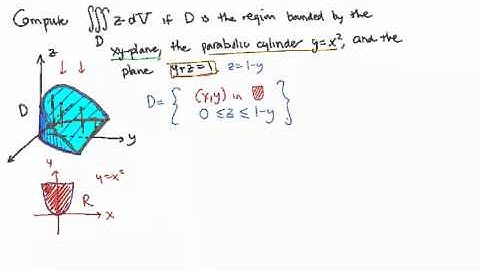 Compute ∭ z dV if D is the region bounded by the
D
xy-plane, the parabolic cylinder y=x², and the
plane y+z=1, z=1-y
z
D
D= { (x,y) in
0 ≤ z ≤ 1-y }
y
y
y=x²
R
x